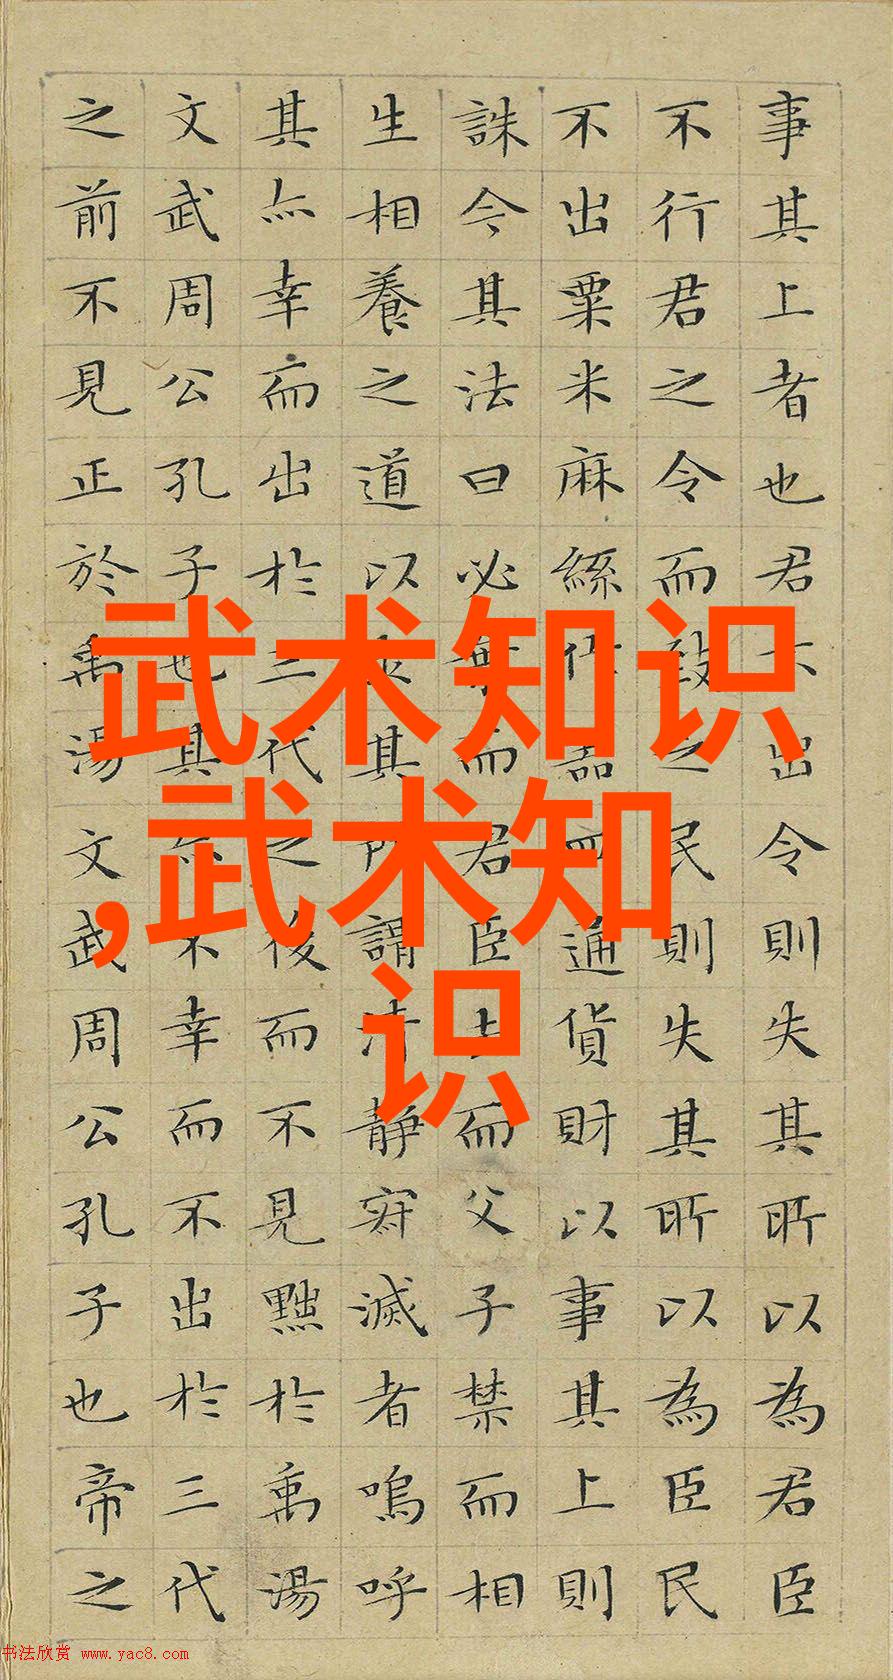 事其上者也君出令則失其所以為君臣
不行君之令而致之民則失其所以為臣民
不出粟米麻絲作器皿通貨財以事其上則
誅今其法曰必棄而君臣去而父子禁而相
生相養之道以其所謂清静寂滅者嗚呼
其亦幸而出於三代之後而不見黜於禹湯
文武周公孔子也其亦不幸而不出於三代
之前不見正於禹湯文武周公孔子也帝之
武术知识
,武术知
识
书法欣赏 www.yac8.com